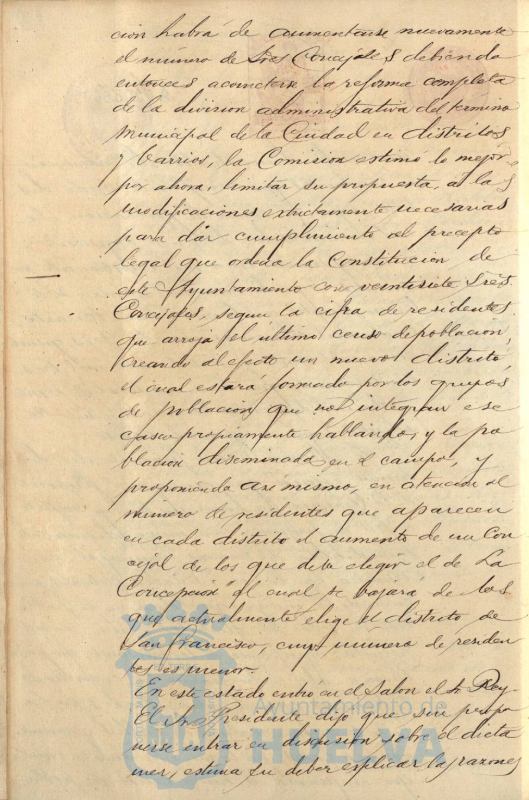 cion habrá de aumentarse nuevamente
el número de Sres Concejales debiendo
entonces acometerse la reforma completa
de la division administrativa del termino
municipal de la Ciudad en distritos
y barrios, la Comision estimo lo mejor
por ahora, limitar su propuesta, a las
modificaciones extrictamente necesarias
para dar cumplimiento al precepto
legal que ordena la Constitucion de
este Ayuntamiento con veintisiete Sres.
Concejales, segun la cifra de residentes
que arroja el último censo de poblacion,
creando al efecto un nuevo distrito,
el cual estará formado por los grupos
de poblacion que no integran ese
casco propiamente hablando, y la po
blacion diseminada en el campo, y
proponiendo asi mismo, en atencion al
numero de residentes que aparecen
en cada distrito el aumento de un Con
cejal de los que debe elegir el de La
Concepcion" el cual se bajará de los
que actualmente elige el distrito de
San Francisco, cuyo número de residen
tes es menor.
En este estado entró en el Salon el Sr Rey
El Sr Presidente dijo que sin propo
nerse entrar en discusion sobre el dicta
men, estima su deber explicar las razones
Ayuntamiento de
HUELVA